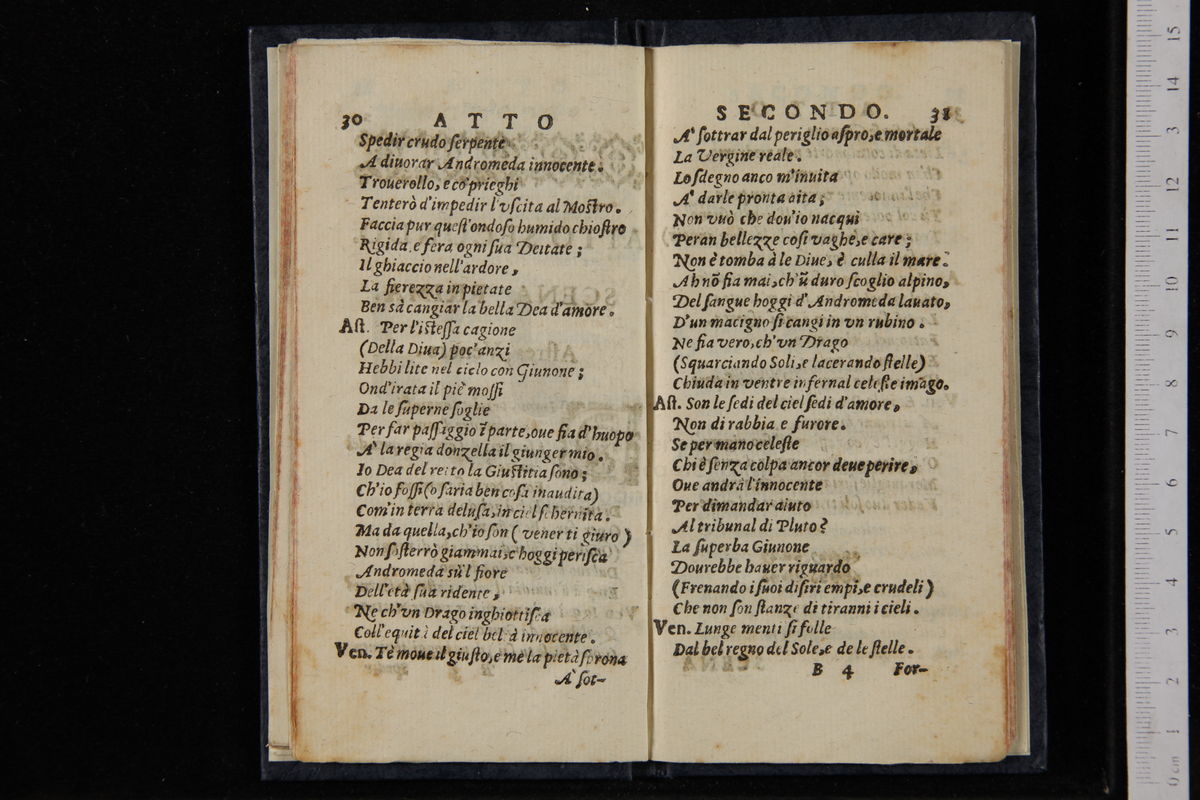 30 ATTO
Spedir crudo serpente
A diuorar Andromeda innocente.
Trouerollo, e co' prieghi
Tenterò d'impedir l'vscita al Mostro.
Faccia pur quest'ondoso humido chiostro
Rigida, e fera ogni sua Deitate;
Il ghiaccio nell'ardore,
La fierezza in pietate
Ben sà cangiar la bella Dea d'amore.
Ast. Per l'istessa cagione
(Della Diua) poc'anzi
Hebbi lite nel cielo con Giunone;
Ond'irata il piè mossi
Da le superne soglie
Per far passaggio ĩ parte, oue fia d'huopo
A' la regia donzella il giunger mio.
Io Dea del retto la Giustitia sono;
Ch'io fossi (o saria ben cosa inaudita)
Com'in terra delusa, in ciel schernita.
Ma da quella, ch'io son (vener ti giuro)
Non sosterrò giammai, c'hoggi perisca
Andromeda sù'l fiore
Dell'età sua ridente,
Ne ch'vn Drago inghiottisca
Coll'equità del ciel beltà innocente.
Ven. Tè moue il giusto, e me la pietà sprona
A' sot-
SECONDO. 31
A' sottrar dal periglio aspro, e mortale
La Vergine reale.
Lo sdegno anco m'inuita
A' darle pronta aita;
Non vuò che dou'io nacqui
Peran bellezze cosi vaghe, e care;
Non è tomba à le Diue, è culla il mare.
Ah nõ fia mai, ch'ũ duro scoglio alpino,
Del sangue hoggi d'Andromeda lauato,
D'un macigno si cangi in vn rubino.
Ne fia vero, ch'vn Drago
(Squarciando Soli, e lacerando stelle)
Chiuda in ventre infernal celeste imago.
Ast. Son le sedi del ciel sedi d'amore,
Non di rabbia, e furore.
Se per mano celeste
Chi è senza colpa ancor deue perire,
Oue andrà l'innocente
Per dimandar aiuto
Al tribunal di Pluto?
La superba Giunone
Dourebbe hauer riguardo
(Frenando i suoi disiri empi, e crudeli)
Che non son stanze di tiranni i cieli.
Ven. Lunge menti si folle
Dal bel regno del Sole, e de le stelle.
B 4 For-